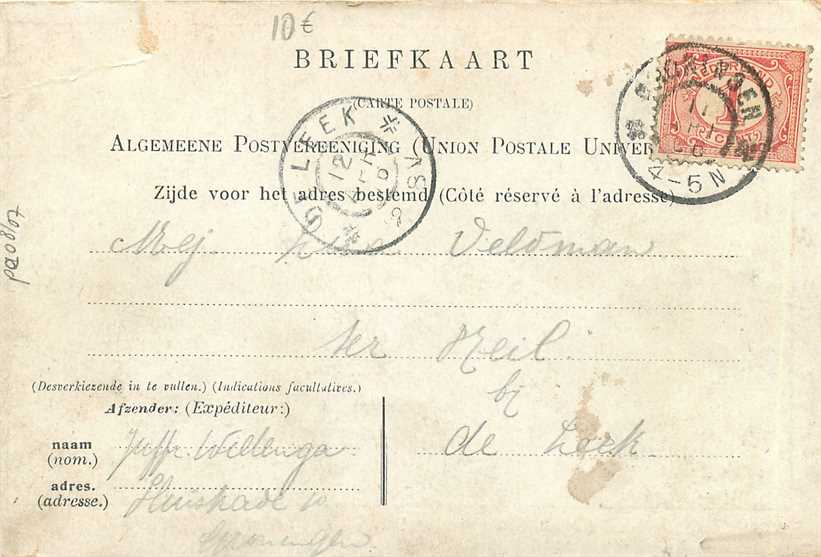 10€
BRIEFKAART
(CARTE POSTALE)
ALGEMEENE POSTVEREENIGING (UNION POSTALE UNIVER
Zijde voor het adres bestemd (Côté réservé à l'adresse)
LEEK
12
4-5N
Mej. Veldman
ter Heil
bij
de Leek
(Desverkiezende in te vullen.) (Indications facultatives.)
Afzender: (Expéditeur:)
naam
(nom.)
Juffr. Wellenga
adres.
(adresse.)
10
Groningen